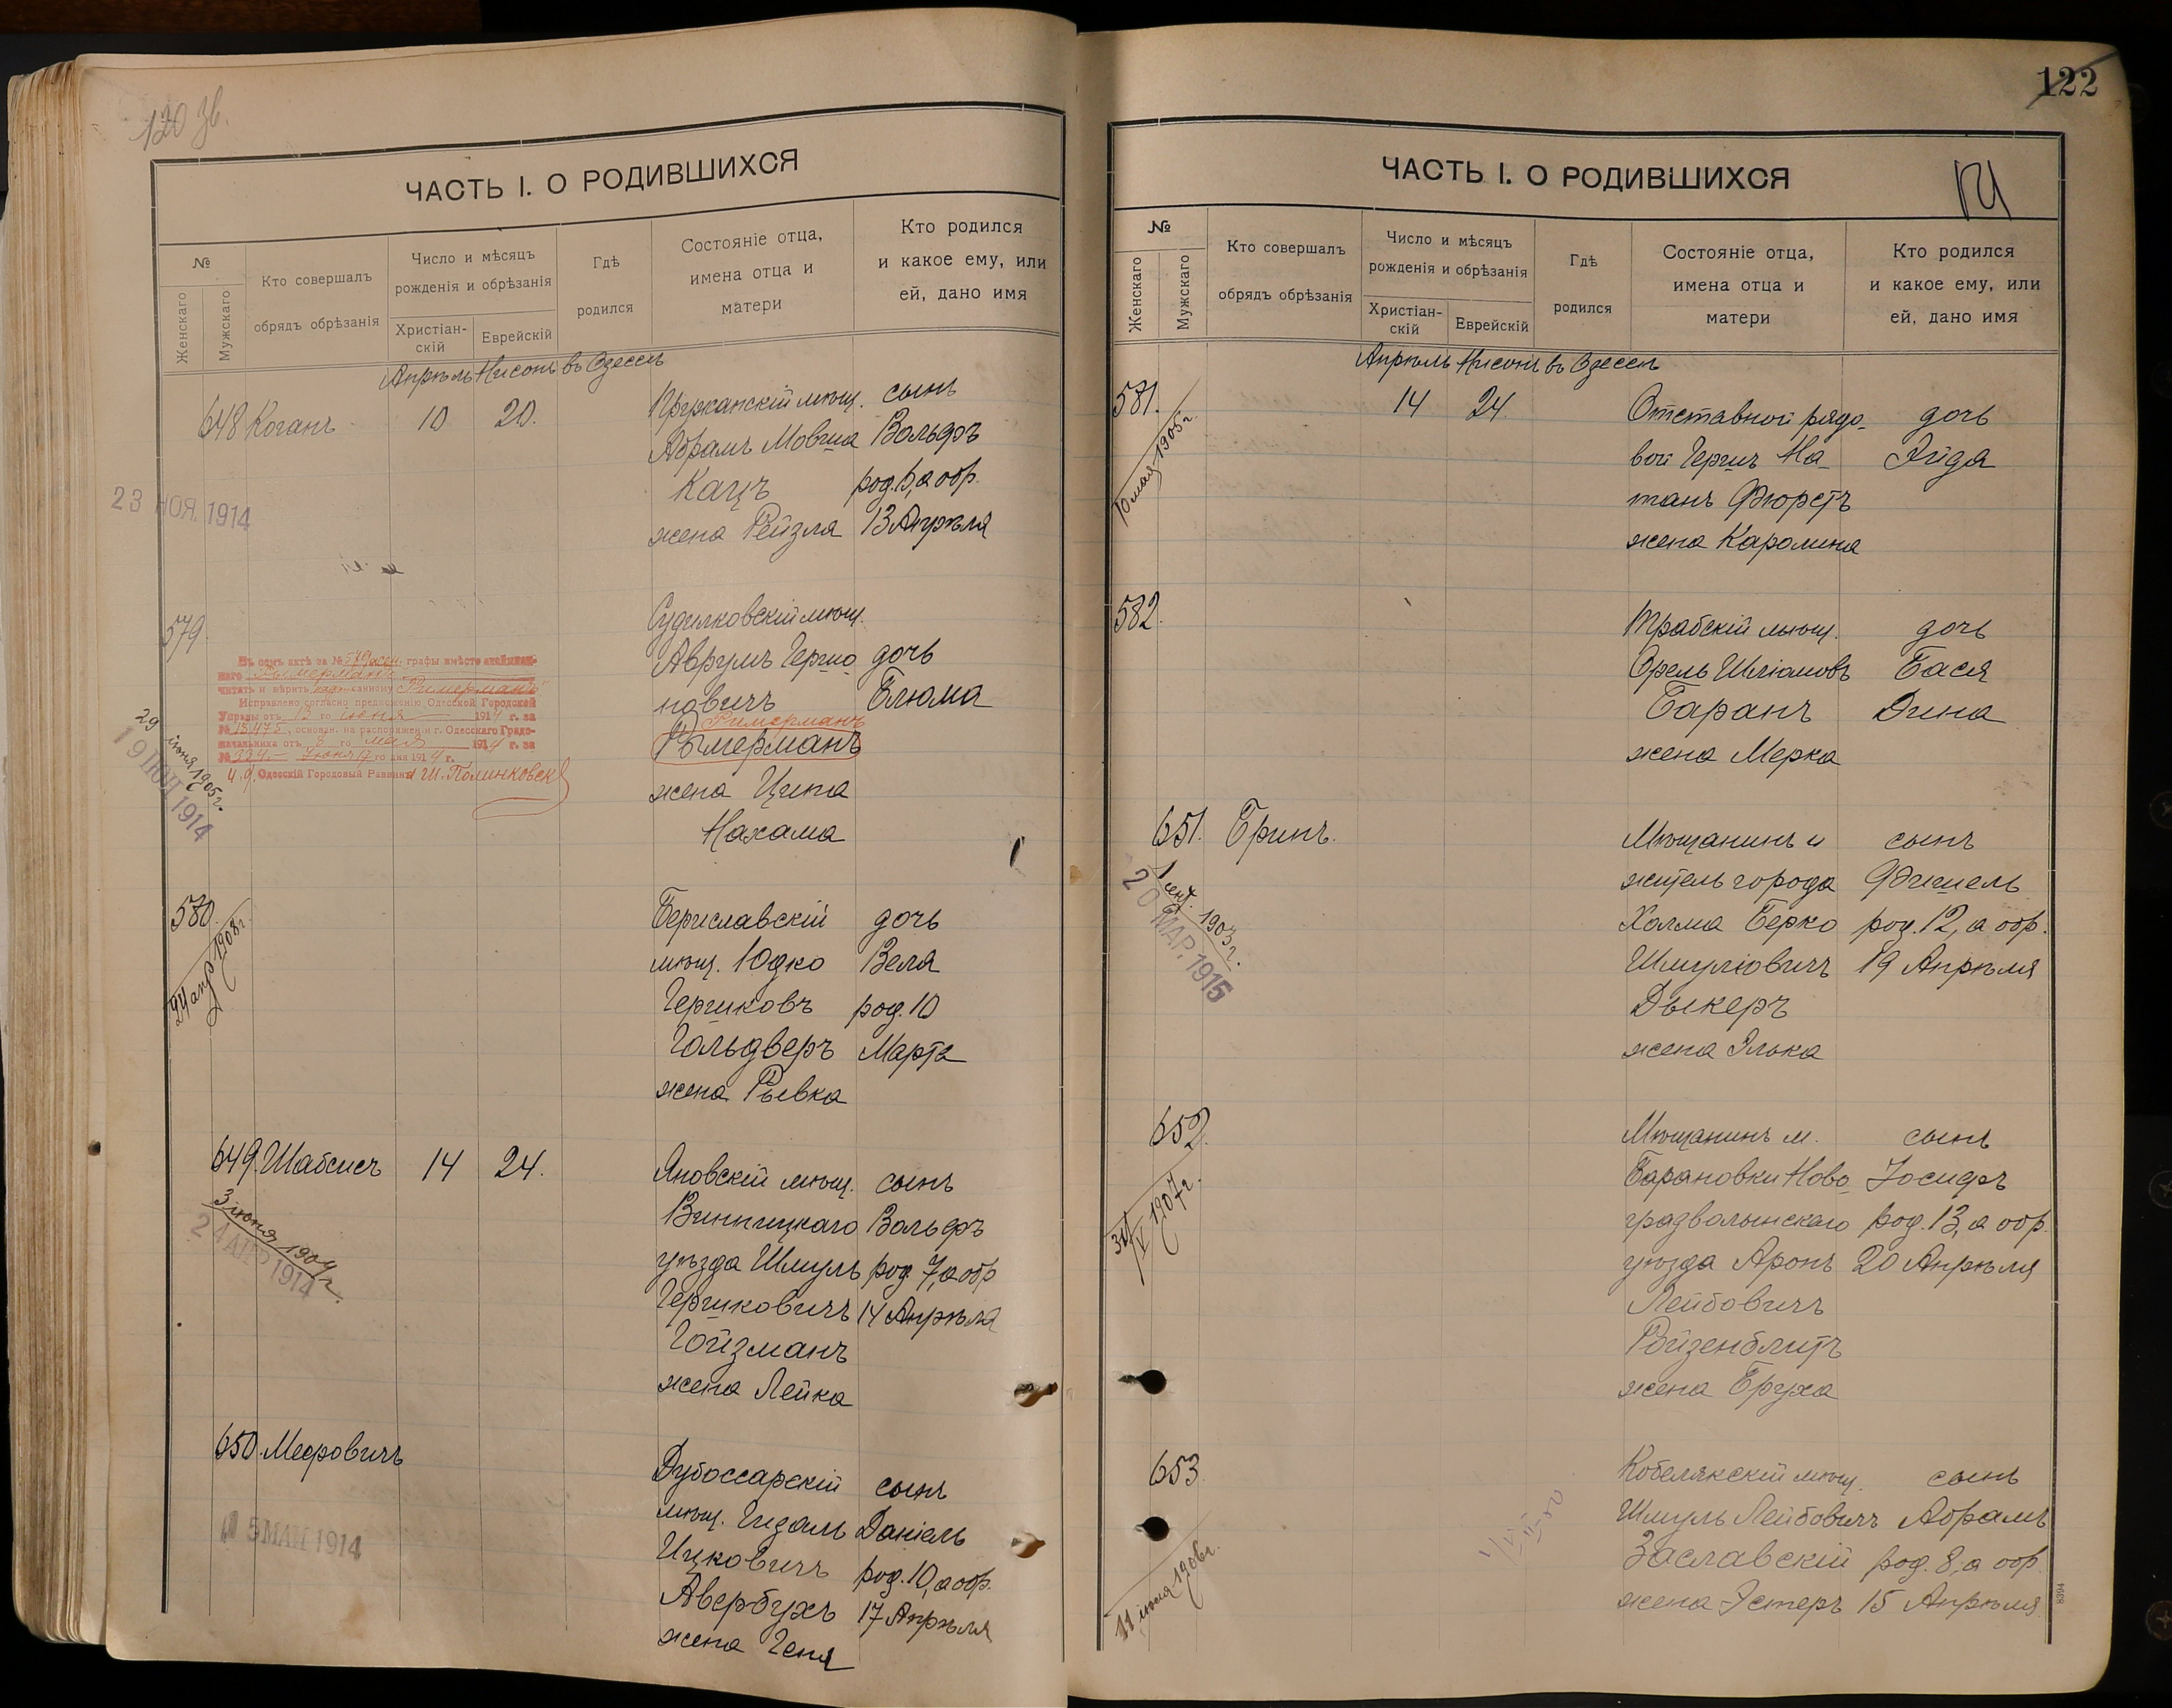 120 зв.
ЧАСТЬ I. О РОДИВШИХСЯ
№
Женскаго
Мужскаго
Кто совершалъ
обрядъ обрѣзанія
Число и мѣсяцъ
рожденія и обрѣзанія
Христіан-
скій
Еврейскій
Гдѣ
родился
Состояніе отца,
имена отца и
матери
Кто родился
и какое ему, или
ей, дано имя
Апрѣль Нисонъ въ Одессѣ
648 Коганъ 10 20. Пружанскій мѣщ. сынъ
Абрамъ Мовша Вольфъ
Кацъ род. 6, а обр.
жена Рейзля 13 Апрѣля
23 НОЯ. 1914
579. Судилковскій мѣщ.
Аврумъ Гершо дочь
новичъ Блюма
Римерманъ
Рымерманъ
жена Цина
Нахама
Въ семъ актѣ за № 579 жен. графы вмѣсто
наго "Рымерманъ"
читать и вѣрить "Римерманъ"
Исправлено согласно предложенію Одесской Городской
Управы отъ 13 го іюня 1914 г. за
№ 15475, основан. на распоряженіи г. Одесскаго Градо-
начальника отъ 8 го мая 1914 г. за
№ 334. Іюня 19 го дня 1914 г.
И. д. Одесскій Городовый Раввинъ Ш. Полинковскій
29 іюня 1905 г.
19 ІЮН 1914
580. Бериславскій дочь
мѣщ. Юдко Веля
Гершковъ род. 10
Гольдверъ Марта
жена Рывка
24 апр 1908 г.
649. Шабсисъ 14 24. Яновскій мѣщ. сынъ
Винницкаго Вольфъ
уѣзда Шмуль род. 7, а обр
Гершковичъ 14 Апрѣля
Гойзманъ
жена Лейка
3 іюня 1904 г.
24 АПР 1914
650. Мееровичъ
Дубоссарскій сынъ
мѣщ. Гидаль Даніель
Ицковичъ род. 10, а обр.
Авербухъ 17 Апрѣля
жена Геня
5 МАЙ 1914
122
ЧАСТЬ I. О РОДИВШИХСЯ
№
Женскаго
Мужскаго
Кто совершалъ
обрядъ обрѣзанія
Число и мѣсяцъ
рожденія и обрѣзанія
Христіан-
скій
Еврейскій
Гдѣ
родился
Состояніе отца,
имена отца и
матери
Кто родился
и какое ему, или
ей, дано имя
Апрѣль Нисонъ въ Одессѣ
581. 14 24 Отставной рядо- дочь
вой Гершъ На- Айда
танъ Фюрстъ
жена Каролина
10 мая 1905 г.
582. Трабскій мѣщ. дочь
Орель Шліомовъ Бася
Баранъ Дина
жена Мерка
651. Бринъ. Мѣщанинъ и сынъ
житель города Фишель
Холма Берко род. 12, а обр.
Шмуліовичъ 19 Апрѣля
Дыкеръ
жена Элька
1 сент. 1903 г.
20 МАР. 1915
652. Мѣщанинъ м. сынъ
Барановки Ново- Іосифъ
градволынскаго род. 13, а обр.
уѣзда Аронъ 20 Апрѣля
Лейбовичъ
Ройзенблитъ
жена Бруха
1907 г.
653. Кобелякскій мѣщ. сынъ
Шмуль Лейбовичъ Абрамъ
Заславскій род. 8, а обр.
жена Эстеръ 15 Апрѣля
11 іюня 1906 г.
8394